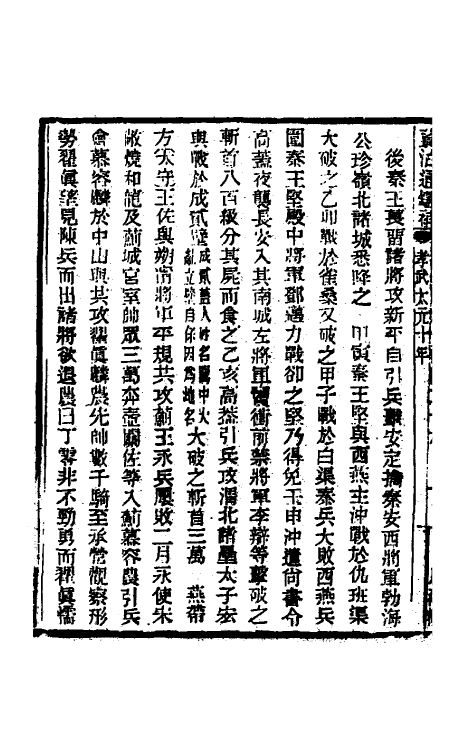 資治通鑑補 孝武太元十年
後秦王萇留諸將攻新平自引兵擊安定擒秦安西將軍勃海
公珍嶺北諸城悉降之 甲寅秦王堅與西燕主沖戰於仇班渠
大破之乙卯戰於雀桑又破之甲子戰於白渠秦兵大敗西燕兵
圍秦王堅殿中將軍鄧邁力戰卻之堅乃得免壬申沖遣尚書令
高蓋夜襲長安入其南城左將軍竇衝前禁將軍李辯等擊破之
斬首八百級分其屍而食之乙亥高蓋引兵攻渭北諸壘太子宏
與戰於成貳壁成貳蓋人姓名關中大亂立壁自保因為地名大破之斬首三萬 燕帶
方太守王佐與朔甯將軍平規共攻薊王永兵屢敗二月永使宋
敞燒和龍及薊城宮室帥眾三萬奔壺關佐等入薊慕容農引兵
會慕容麟於中山與共攻翟真麟農先帥數千騎至承營觀察形
勢翟真望見陳兵而出諸將欲退農曰丁零非不勁勇而翟真懦